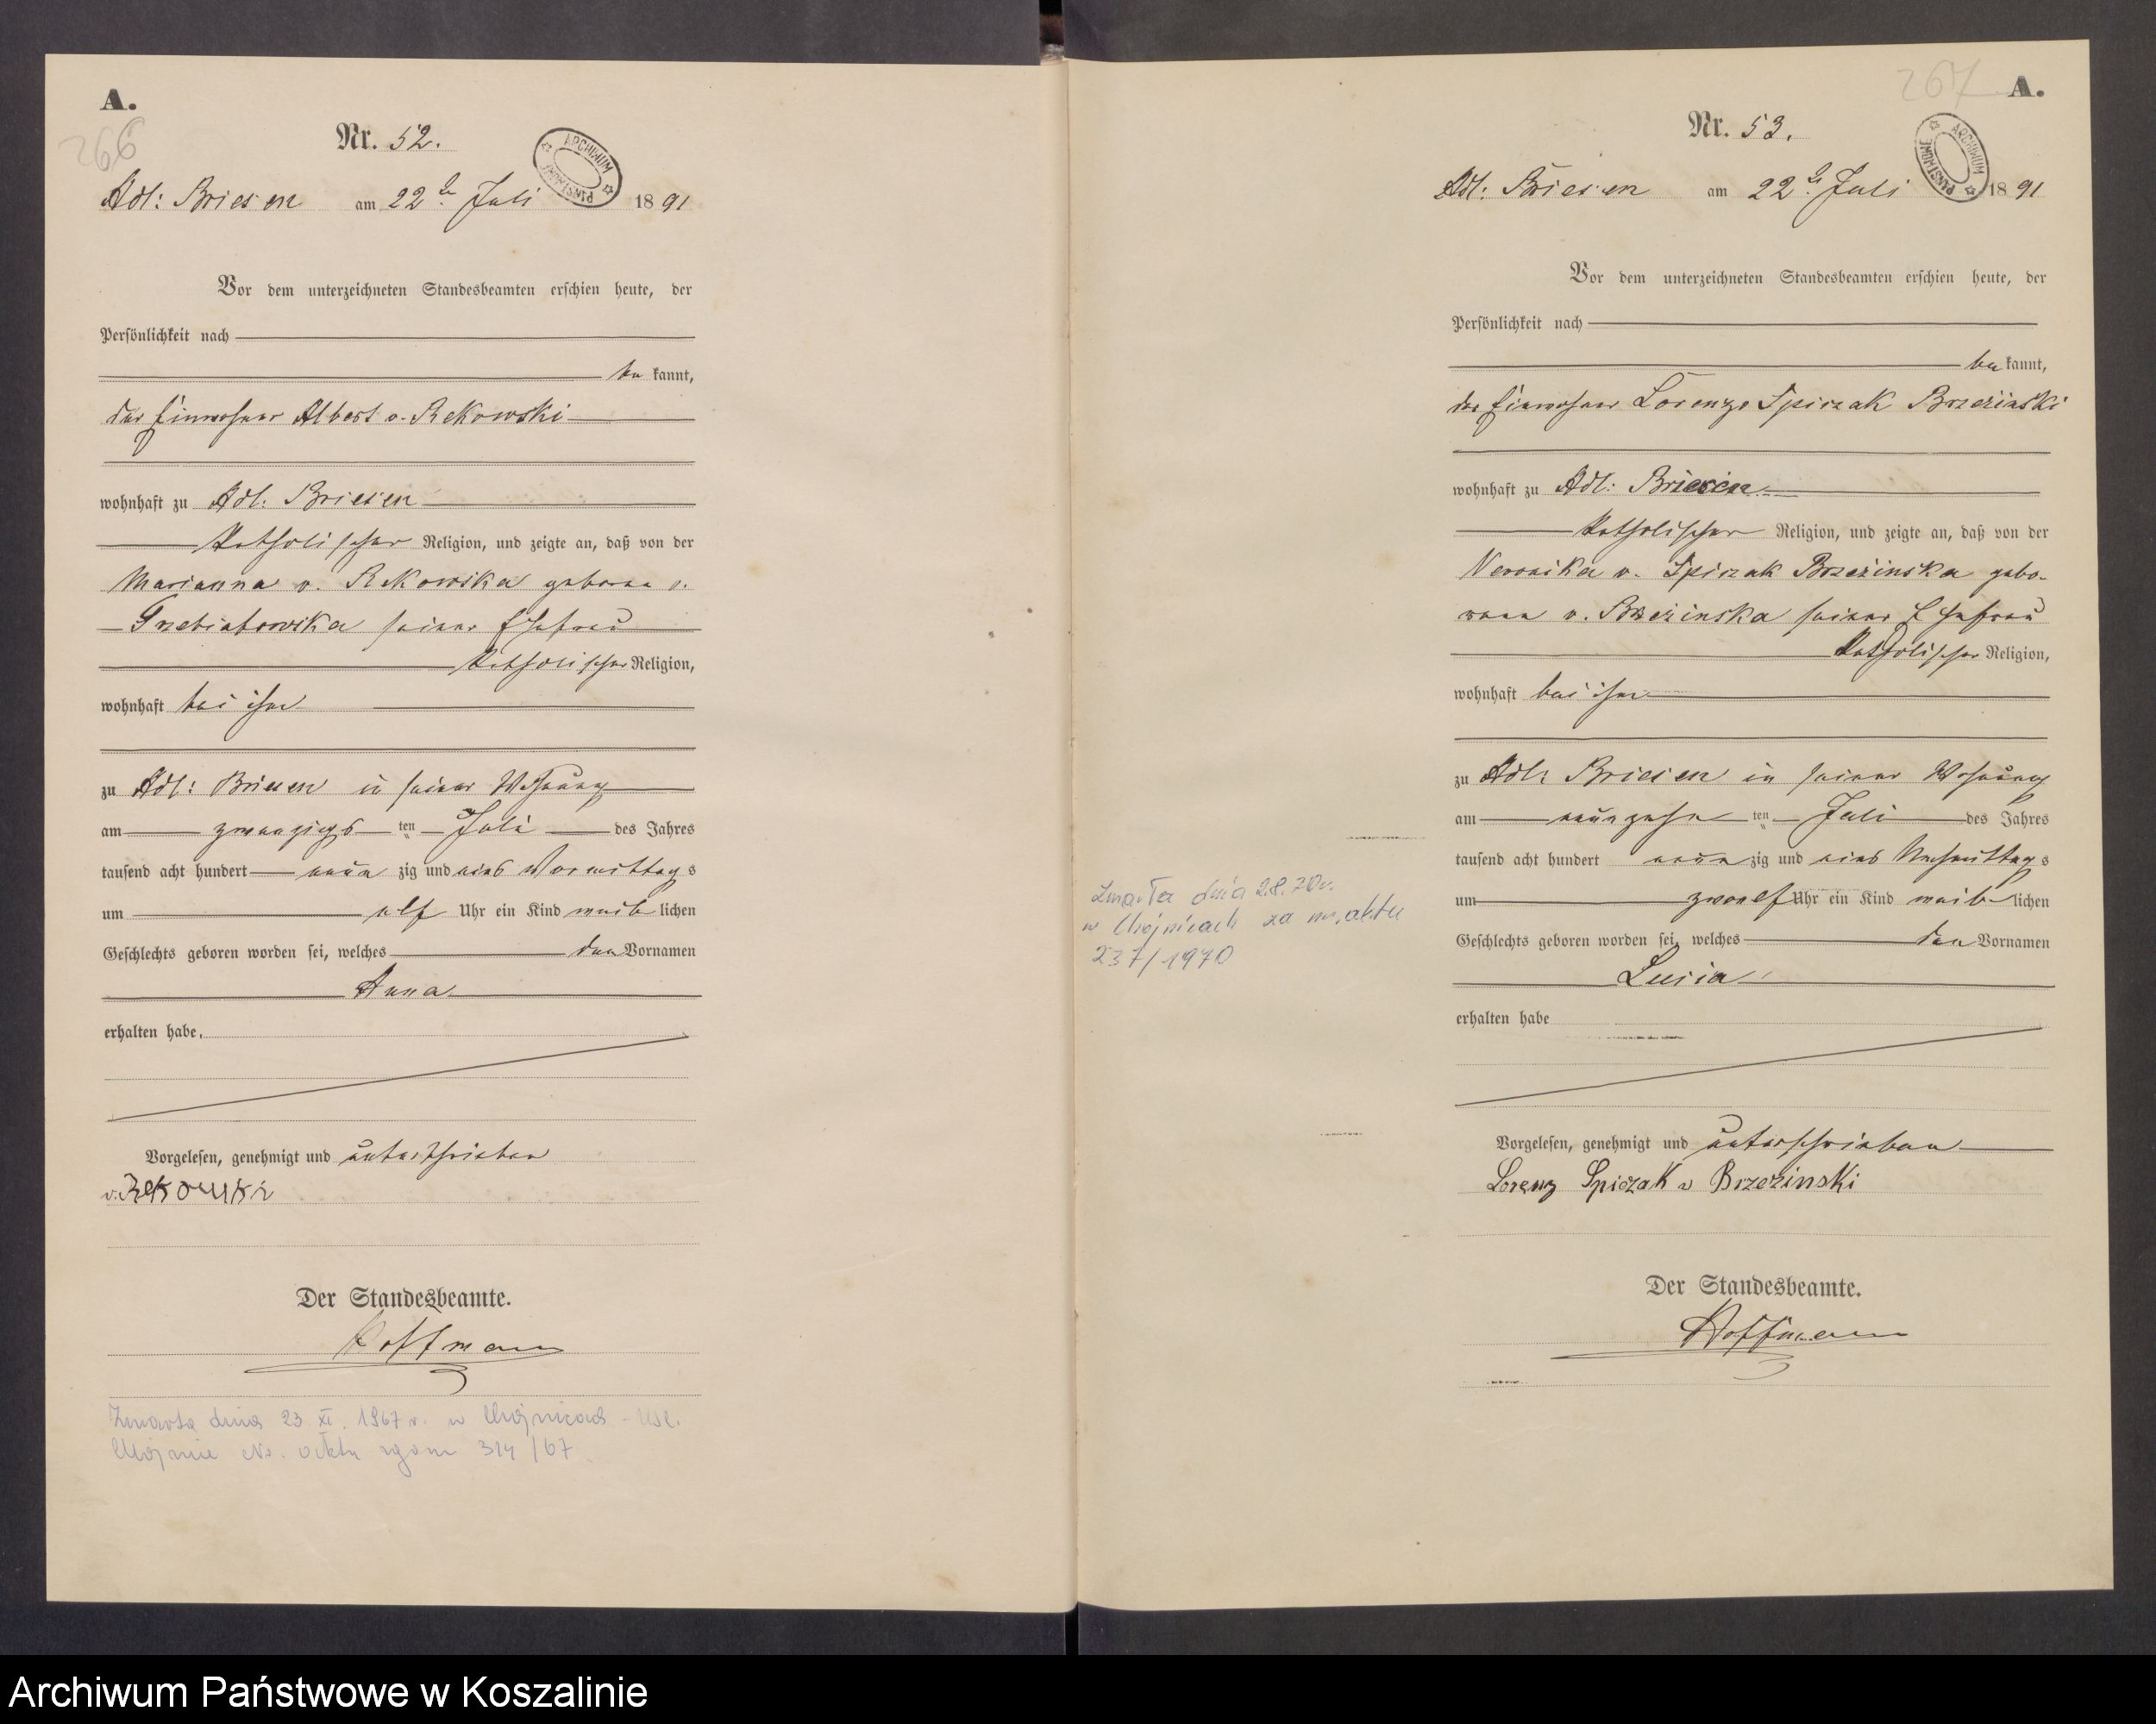 A.
266
Nr. 52.
ARCHIWUM PAŃSTWOWE
Adl: Briesen am 22t Juli 1891
Vor dem unterzeichneten Standesbeamten erschien heute, der
Persönlichkeit nach
be kannt,
der Einwohner Albert v. Rekowski
wohnhaft zu Adl. Briesen
Katholischer Religion, und zeigte an, daß von der
Marianna v. Rekowska geborene v.
seiner Ehefrau
Katholischer Religion,
wohnhaft bei ihm
zu Adl: Briesen in seiner Wohnung
am zwanzigs ten Juli des Jahres
tausend acht hundert neun zig und eins Vormittags
um elf Uhr ein Kind weib lichen
Geschlechts geboren worden sei, welches den Vornamen
Anna
erhalten habe.
Vorgelesen, genehmigt und unterschrieben
v. Rekowski
Der Standesbeamte.
Hoffmann
Zmarła dnia 23. XI. 1967 r. w Chojnicach - USC.
Chojnice No. aktu zgonu 314/67
267
A.
Nr. 53.
ARCHIWUM PAŃSTWOWE
Adl: Briesen am 22t Juli 1891
Vor dem unterzeichneten Standesbeamten erschien heute, der
Persönlichkeit nach
be kannt,
der Einwohner Lorenz v Spiczak Brzezinski
wohnhaft zu Adl: Briesen
Katholischer Religion, und zeigte an, daß von der
Veronika v. Spiczak Brzezinska gebo-
rene v. Brzezinska seiner Ehefrau
Katholischer Religion,
wohnhaft bei ihm
zu Adl: Briesen in seiner Wohnung
am neunzehn ten Juli des Jahres
tausend acht hundert neun zig und eins Nachmittags
um zwoelf Uhr ein Kind weib lichen
Geschlechts geboren worden sei, welches den Vornamen
Lucia
erhalten habe
Vorgelesen, genehmigt und unterschrieben
Lorenz Spiczak v Brzezinski
Der Standesbeamte.
Hoffmann
Zmarła dnia 2.8.70r.
w Chojnicach za nr. aktu
237/1970
Archiwum Państwowe w Koszalinie